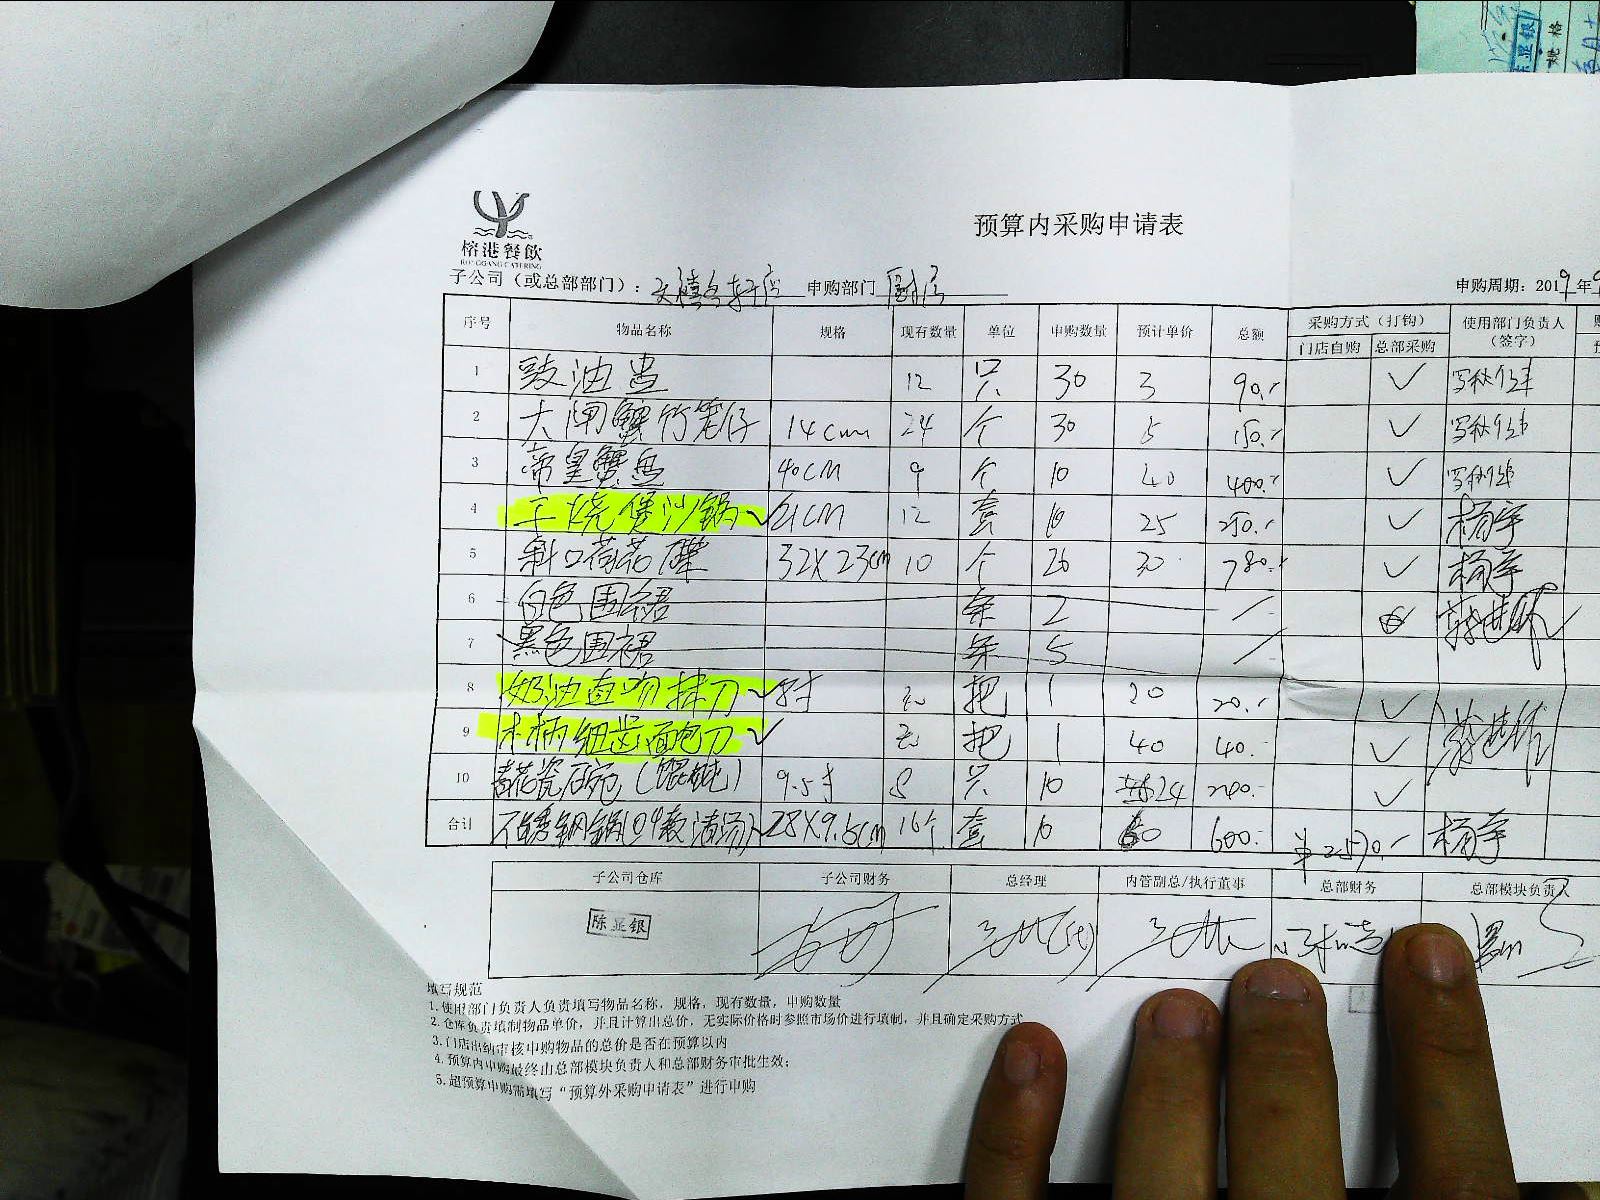 陈显银
规格
榕港餐飲
RONGGANG CATERING
预算内采购申请表
子公司（或总部部门）： 申购部门 厨房 申购周期：2019年9
序号 物品名称 规格 现有数量 单位 申购数量 预计单价 总额 采购方式（打钩） 门店自购 总部采购 使用部门负责人（签字）
1 豉油盅 12 只 30 3 90.- ✓
2 大闸蟹竹笼仔 14cm 24 个 30 5 150.- ✓
3 帝皇蟹盘 40CM 9 个 10 40 400.- ✓
4 干烧煲沙锅 21CM 12 套 10 25 250.- ✓ 杨宇
5 斜口荷花碟 32X23cm 10 个 26 30 780.- ✓ 杨宇
6 白色围裙 条 2
7 黑色围裙 条 5
8 奶油直吻抹刀 8寸 无 把 1 20 20.- ✓
9 木柄细齿面包刀 无 把 1 40 40.- ✓
10 青花瓷 (馄饨) 9.5寸 8 只 10 24 240.- ✓
合计 不锈钢锅 28X9.5cm 16个 套 10 60 600.- ¥2570.- 杨宇
子公司仓库 子公司财务 总经理 内管副总/执行董事 总部财务 总部模块负责人
陈显银
填写规范
1.使用部门负责人负责填写物品名称，规格，现有数量，申购数量
2.仓库负责填制物品单价，并且计算出总价，无实际价格时参照市场价进行填制，并且确定采购方式
3.门店出纳审核申购物品的总价是否在预算以内
4.预算内申购最终由总部模块负责人和总部财务审批生效；
5.超预算申购需填写“预算外采购申请表”进行申购